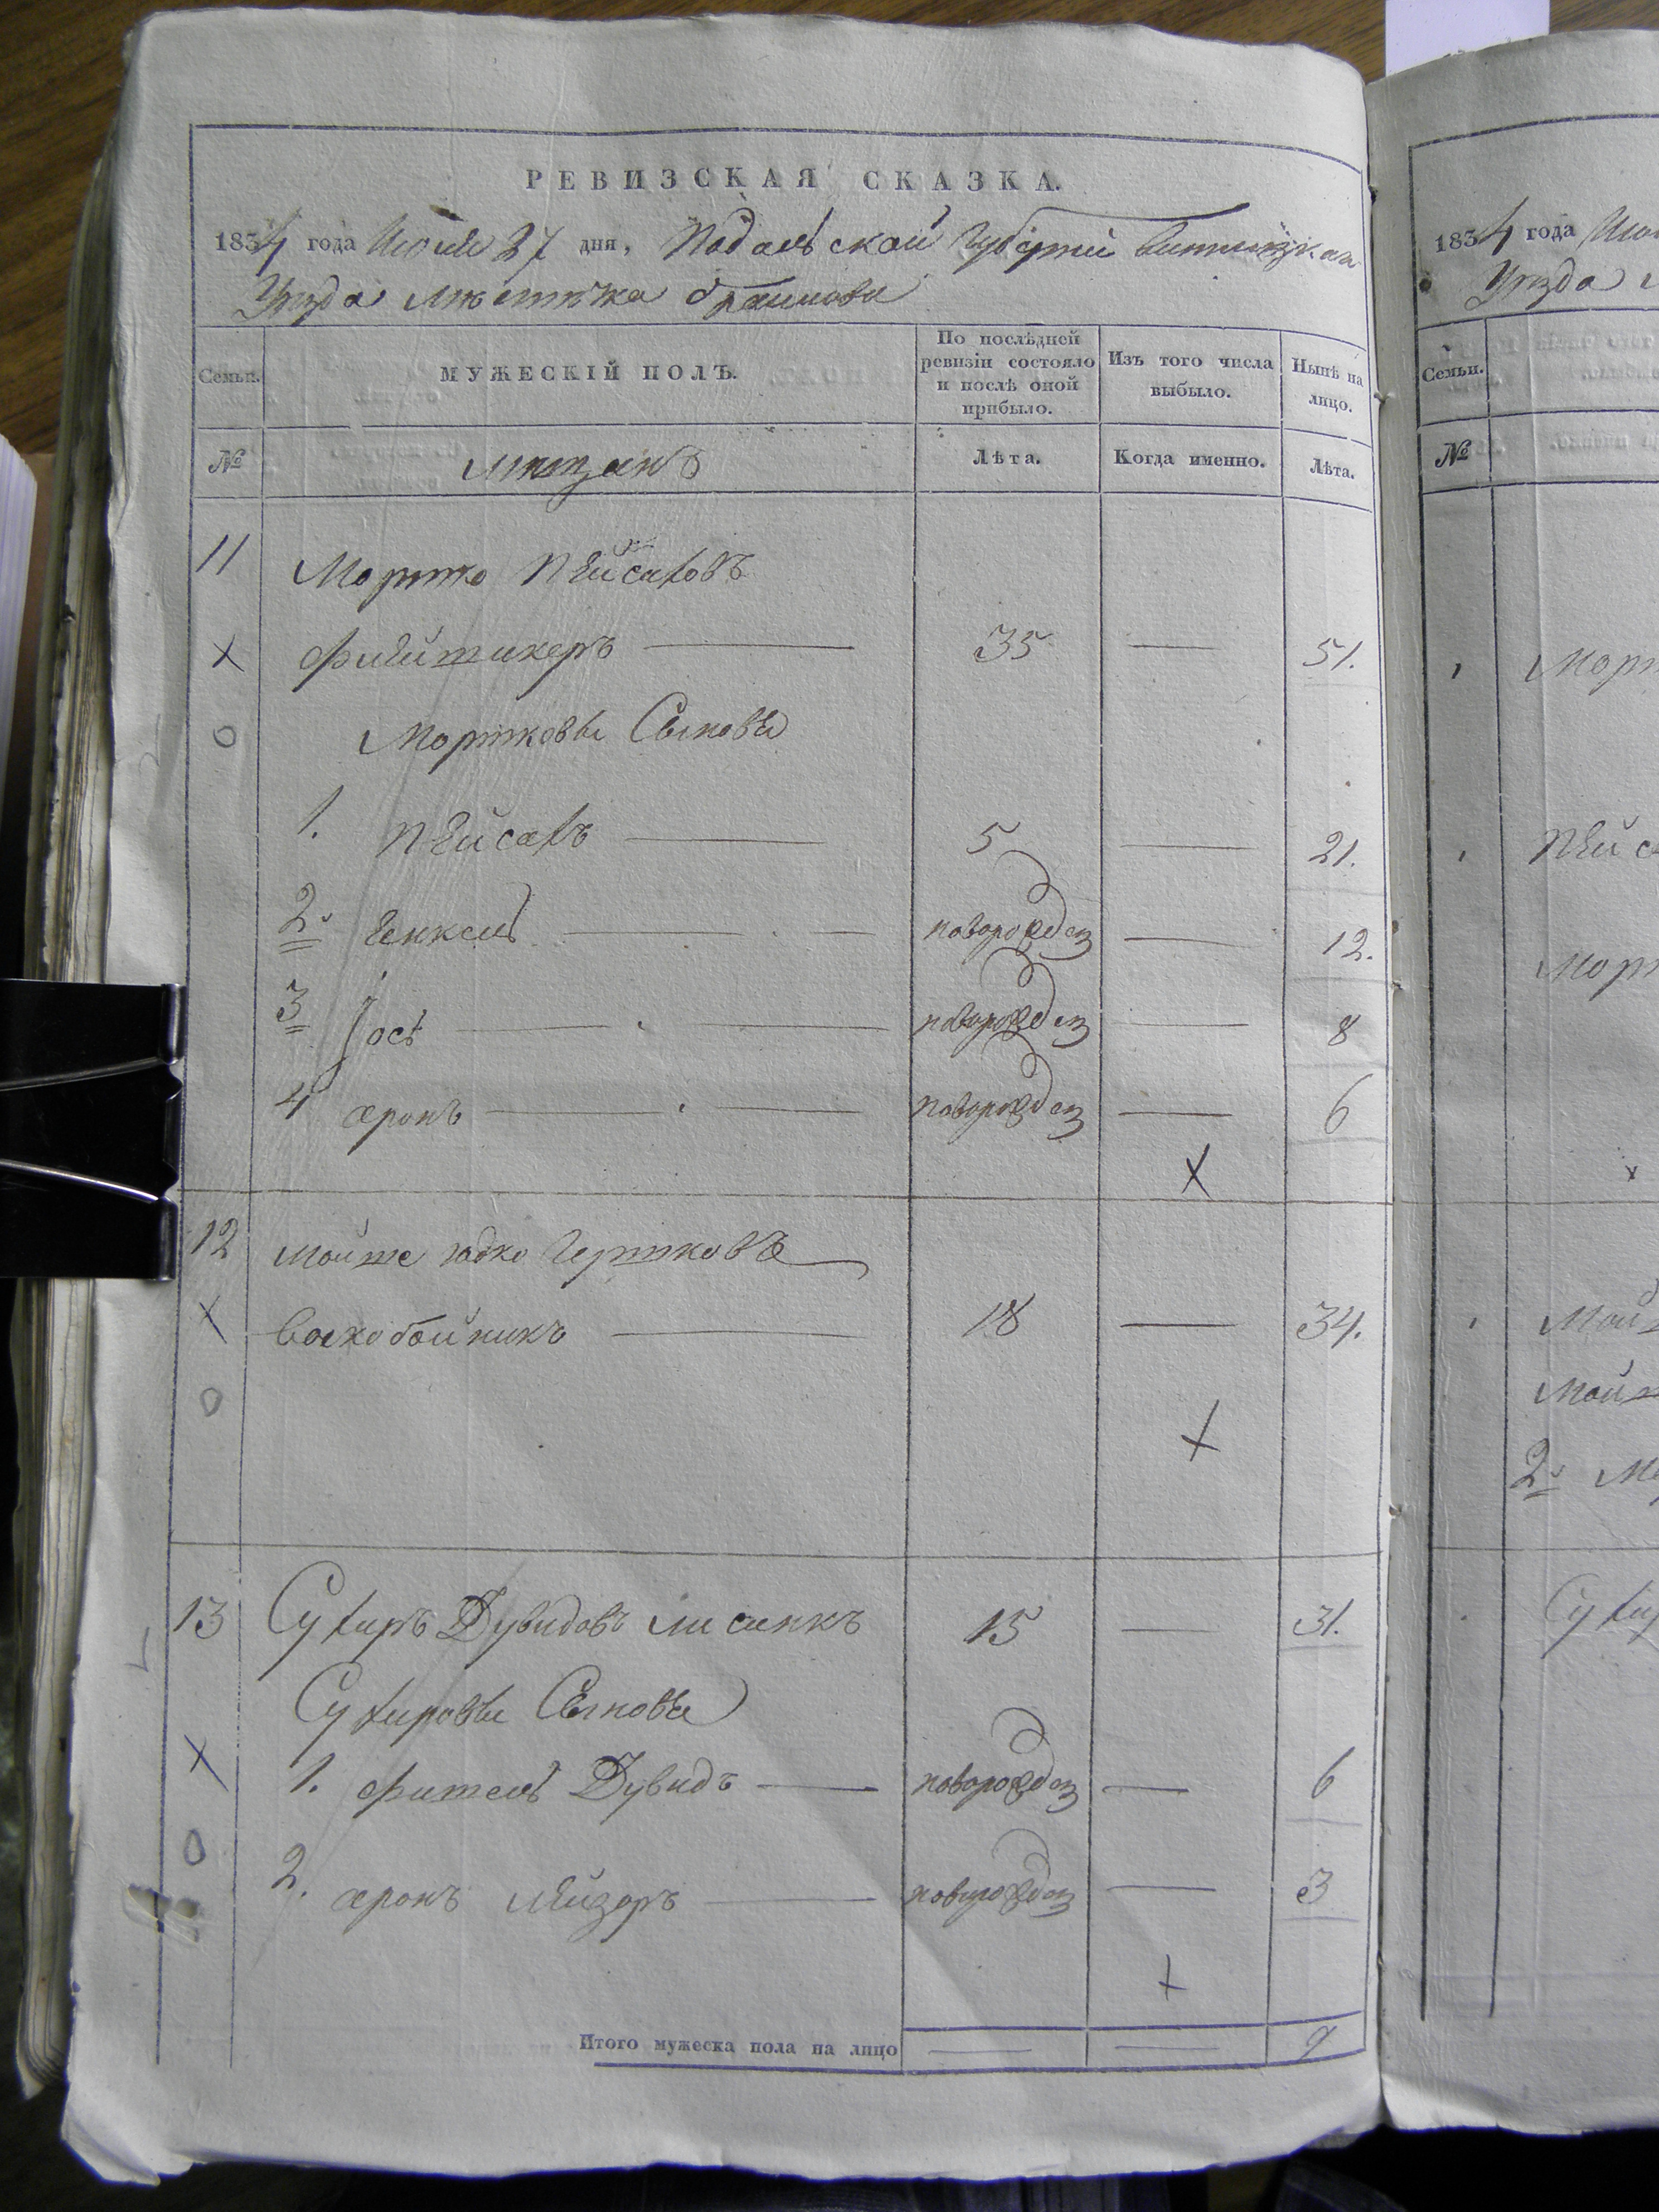 РЕВИЗСКАЯ СКАЗКА.
1834 года Июля 27 дня, Подольской Губерніи Винницкаго
Уезда местечка Браилова
Семьи. МУЖЕСКІЙ ПОЛЪ. По послѣдней ревизіи состояло и послѣ оной прибыло. Изъ того числа выбыло. Нынѣ на лицо.
№ мещанъ Лѣта. Когда именно. Лѣта.
11 Мортко Пейсаховъ
Флейтикеръ 35 — 51.
Мортковы Сыновья
1. Пейсахъ 5 — 21.
2. Генхель новорожден — 12.
3 Іось новорожден — 8
4 аронъ новорожден — 6
12 Мойше юдко Гертковъ
Воскобойникъ 18 — 34.
13 Сухиръ Дувидовъ 15 — 31.
Сухировы Сыновья
1. Фишель Дувидъ новорожден — 6
2. аронъ лейзоръ новорожден — 3
Итого мужеска пола на лицо — — 9
1834 года
Уезда
Семьи.
№